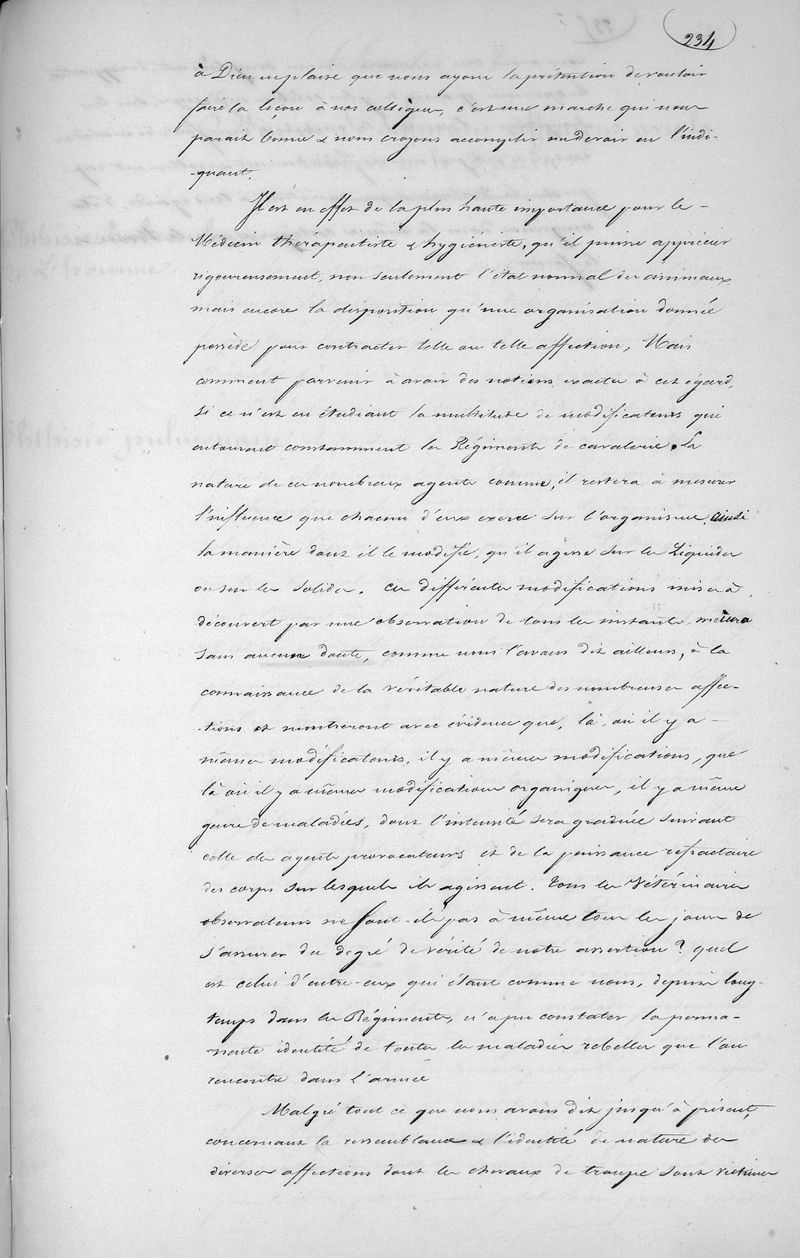 234
à Dieu ne plaise que nous ayons la prétention de vouloir
faire la leçon à nos collègues, c'est une marche qui nous
parait bonne & nous croyons accomplir un devoir en l'indi-
-quant.
Il est en effet de la plus haute importance pour le -
Médecin thérapeutiste & hygiéniste, qu'il puisse apprécier
rigoureusement, non seulement l'état normal des animaux
mais encore la disposition qu'une organisation donnée
possède pour contracter telle ou telle affection, Mais
comment parvenir à avoir des notions exactes à cet égard,
si ce n'est en étudiant la multitude de modificateurs qui
entourent constamment les Régiments de cavalerie. La
nature de ces nombreux agents connue, il restera à mesurer
l'influence que chacun d'eux exerce sur l'organisme, ainsi
la manière dont il le modifie, qu'il agisse sur les Liquides
ou sur les solides. ces différentes modifications mises à
découvert par une observation de tous les instants, mènera
sans aucun doute, comme nous l'avons dit ailleurs, à la
connaissance de la véritable nature des nombreuses affec-
-tions et montreront avec évidence que, là, où il y a -
mêmes modificateurs, il y a mêmes modifications, que
là où il y a mêmes modifications organiques, il y a même
genre de maladies, dont l'intensité sera graduée suivant
celle des agents provocateurs et de la puissance refractaire
des corps sur lesquels ils agissent. Tous les Vétérinaires
observateurs ne sont-ils pas à même tous les jours de
s'assurer du degré de vérité de notre assertion? quel
est celui d'entre-eux qui étant comme nous, depuis long-
temps dans les Régiments, n'a pu constater la perma-
-nente identité de toutes les maladies rebelles que l'on
rencontre dans l'armée
Malgré tout ce que nous avons dit jusqu'à présent,
concernant la ressemblance & l'identité de nature des
diverses affections dont les chevaux de troupe sont victimes